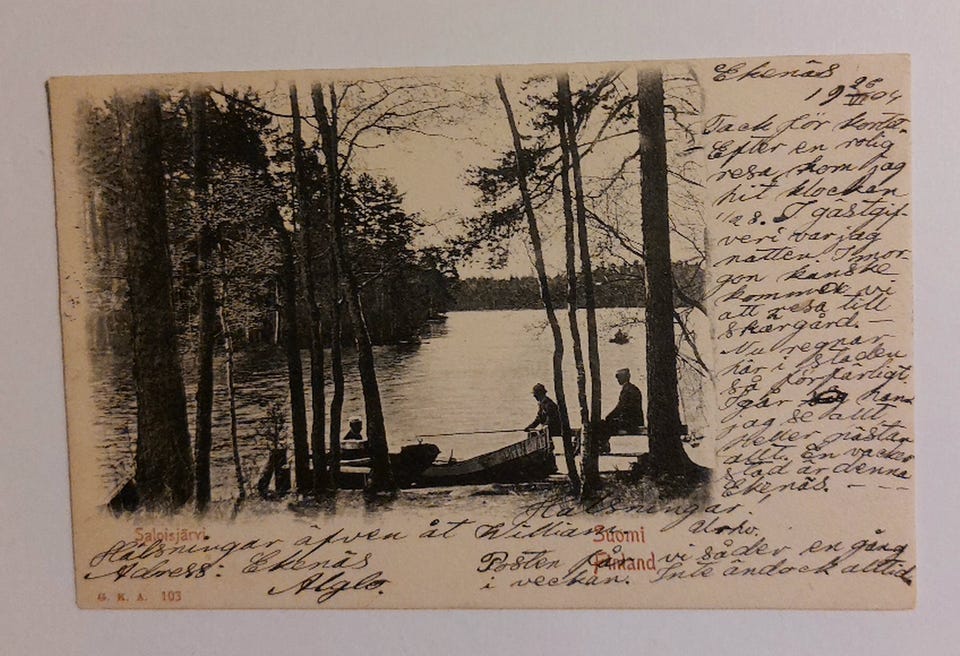 Ekenäs
19 26/VI 04
Tack för kortet.
Efter en rolig
resa kom jag
hit klockan
1/2 8. I gästgif-
veri var jag
natten. I mor-
gon kanske
kommer vi
att resa till
skärgård. —
Nu regnar
här i staden
så förfärligt.
Igår hann
jag se allt
Heller nästan
allt. En vacker
stad är denna
Ekenäs. — —
Hälsningar.
Urho.
Saloisjärvi
Suomi
Finland
Hälsningar äfven åt William
Adress: Ekenäs
Alglo.
Posten får vi söder en gång
i veckan. Inte ändock alltid
G. K. A. 103